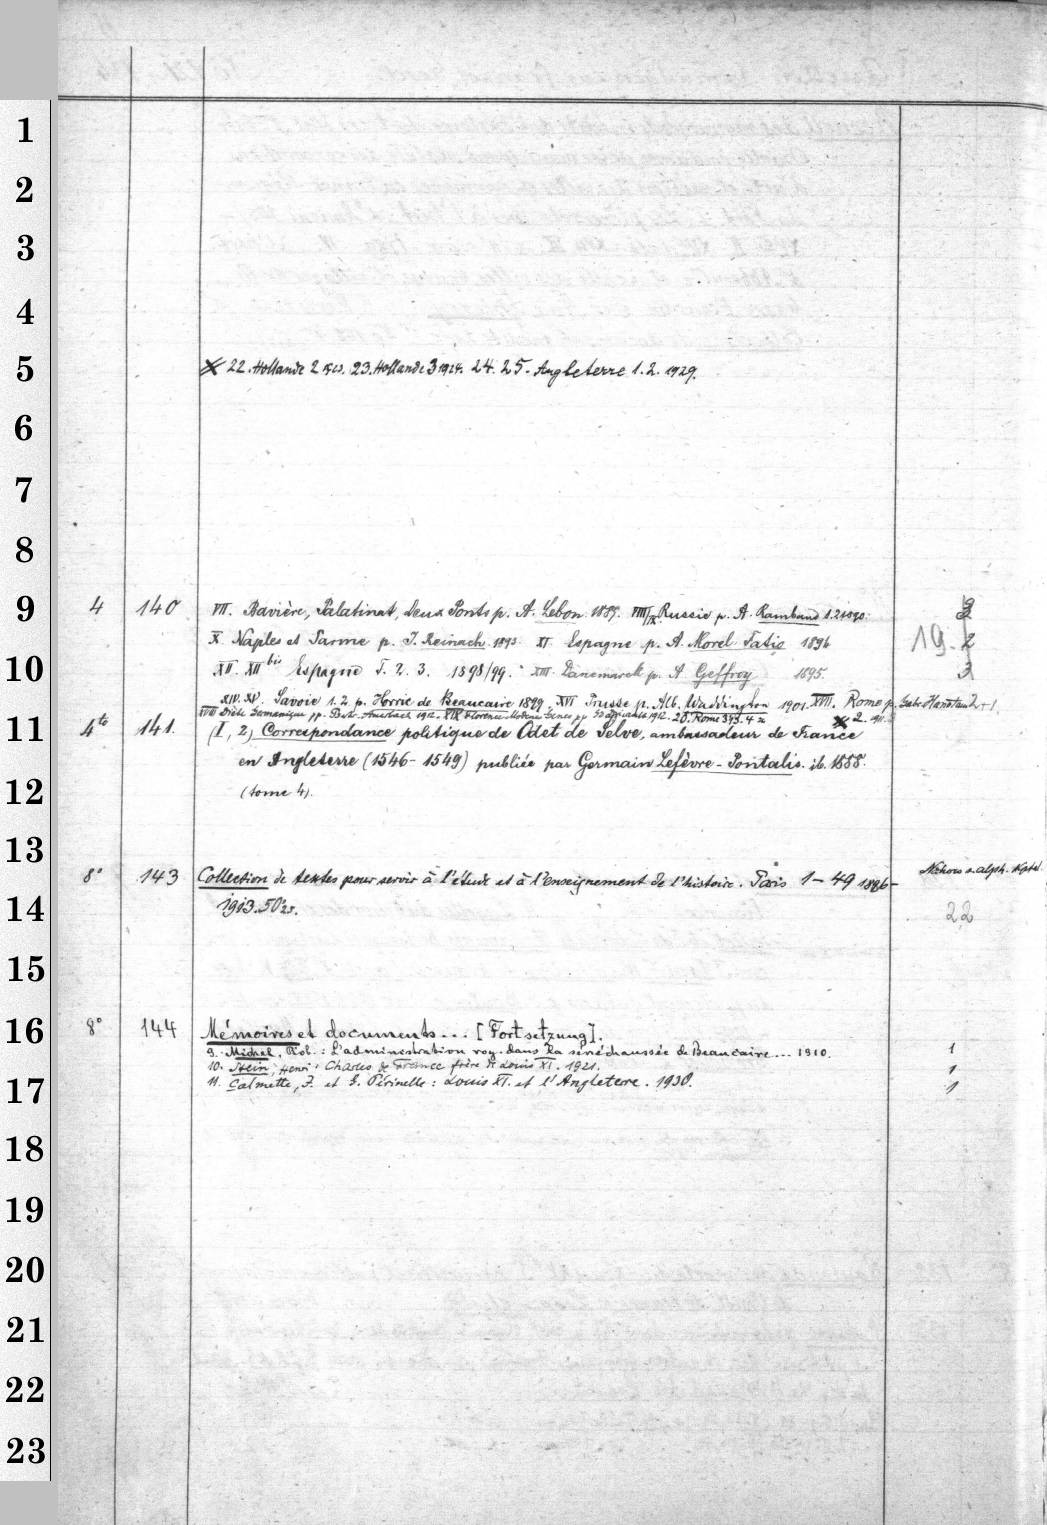 1
2
3
4
5
22. Hollande 2 1923. 23. Hollande 3 1924. 24. 25. Angleterre 1. 2. 1929.
6
7
8
9
4 140 VII. Bavière, Palatinat, Deux Ponts p. A. Lebon 1889. VIII/IX Russie p. A. Rambaud 1.2 1890. 3
X. Naples et Parme p. J. Reinach 1893 XI. Espagne p. A. Morel Fatio 1894 19 2
10
XII. XII bis Espagne T. 2. 3. 1898/99. XIII. Danemarck p. A Geffroy 1895. 3
XIV. XV. Savoie 1. 2 p. Horric de Beaucaire 1899. XVI Prusse p. Alb. Waddington 1901. XVII. Rome p. Gabr. Hanotaux
XVIII Diète Germanique pp. Bertr. Auerbach 1912. XIX Florence Modène Gênes pp 1912. 20. Rome 3 1913. 2. 1911.
11
4to 141. (I, 2) Correspondance politique de Odet de Selve, ambassadeur de France
en Angleterre (1546-1549) publiée par Germain Lefèvre-Pontalis. ib. 1888.
12
(tome 4).
13
8° 143 Collection de textes pour servir à l'étude et à l'enseignement de l'histoire. Paris 1-49 1886-
s. alph.
14
1913. 50 25.
22
15
16
8° 144 Mémoires et documents... [Fortsetzung].
9. Michel, Rob.: L'administration roy. dans la sénéchaussée de Beaucaire... 1910. 1
10. Stein, Henri: Charles de France frère de Louis XI. 1921. 1
17
11. Calmette, J. et G. Périnelle: Louis XI. et l'Angleterre. 1930. 1
18
19
20
21
22
23